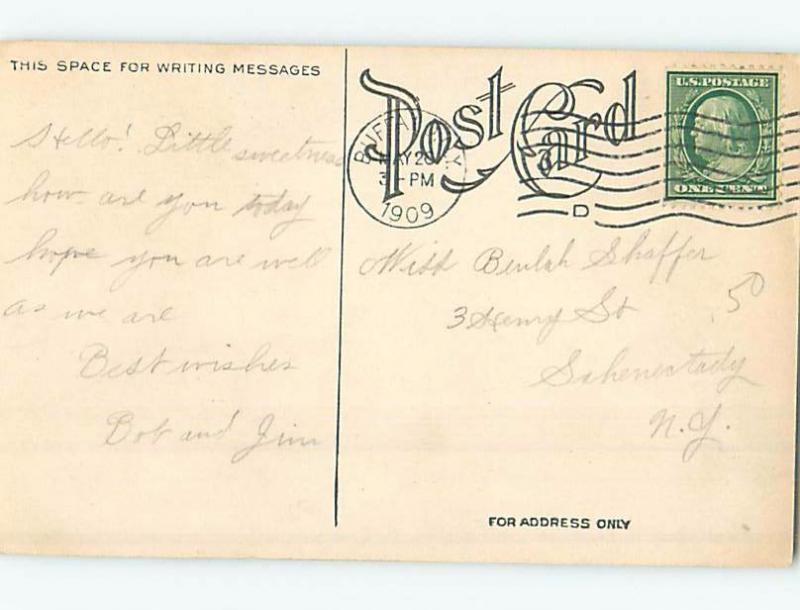 THIS SPACE FOR WRITING MESSAGES
Hello! Little sweetness
how are you today
hope you are well
as we are
Best wishes
Bob and Jim
Post Card
MAY 20
3 - PM
1909
D
U.S. POSTAGE
ONE CENT
Miss Beulah Shaffer
3 Henry St
Schenectady
N.Y.
FOR ADDRESS ONLY